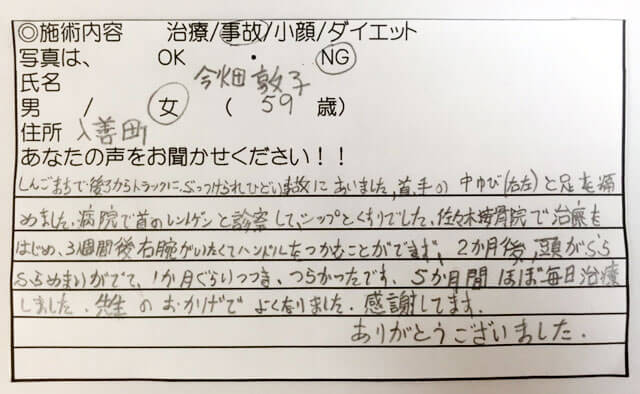 ◎施術内容 治療/事故/小顔/ダイエット
写真は、 OK ・ NG
氏名 今畑 敦子
男 / 女 ( 59 歳)
住所 入善町
あなたの声をお聞かせください！！
しんごまちで後ろからトラックにぶつけられひどい事故にあいました。首、手の中ゆび(右左)と足を痛
めました。病院で首のレントゲンと診察して、シップとくすりでした。佐々木接骨院で治療を
はじめ、3週間後右腕がいたくてハンドルをつかむことができず、2か月後、頭がふら
ふらめまいがでて、1か月ぐらいつづき、つらかったです。5か月間ほぼ毎日治療
しました。先生のおかげでよくなりました。感謝してます。
ありがとうございました。